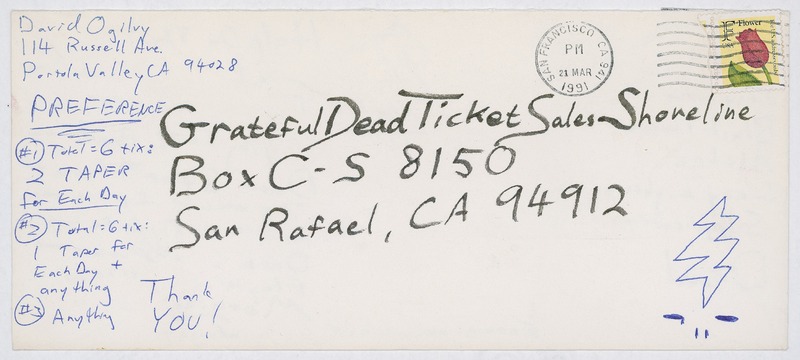 David Ogilvy
114 Russell Ave.
Portola Valley CA 94028
PREFERENCE
#1 Total=6 tix:
2 TAPER
for Each Day
#2 Total=6 tix:
1 Taper for
Each Day +
anything
#3 Anything
Thank
YOU!
SAN FRANCISCO CA 941
PM
21 MAR
1991
F Flower
Grateful Dead Ticket Sales-Shoreline
Box C-S 8150
San Rafael, CA 94912